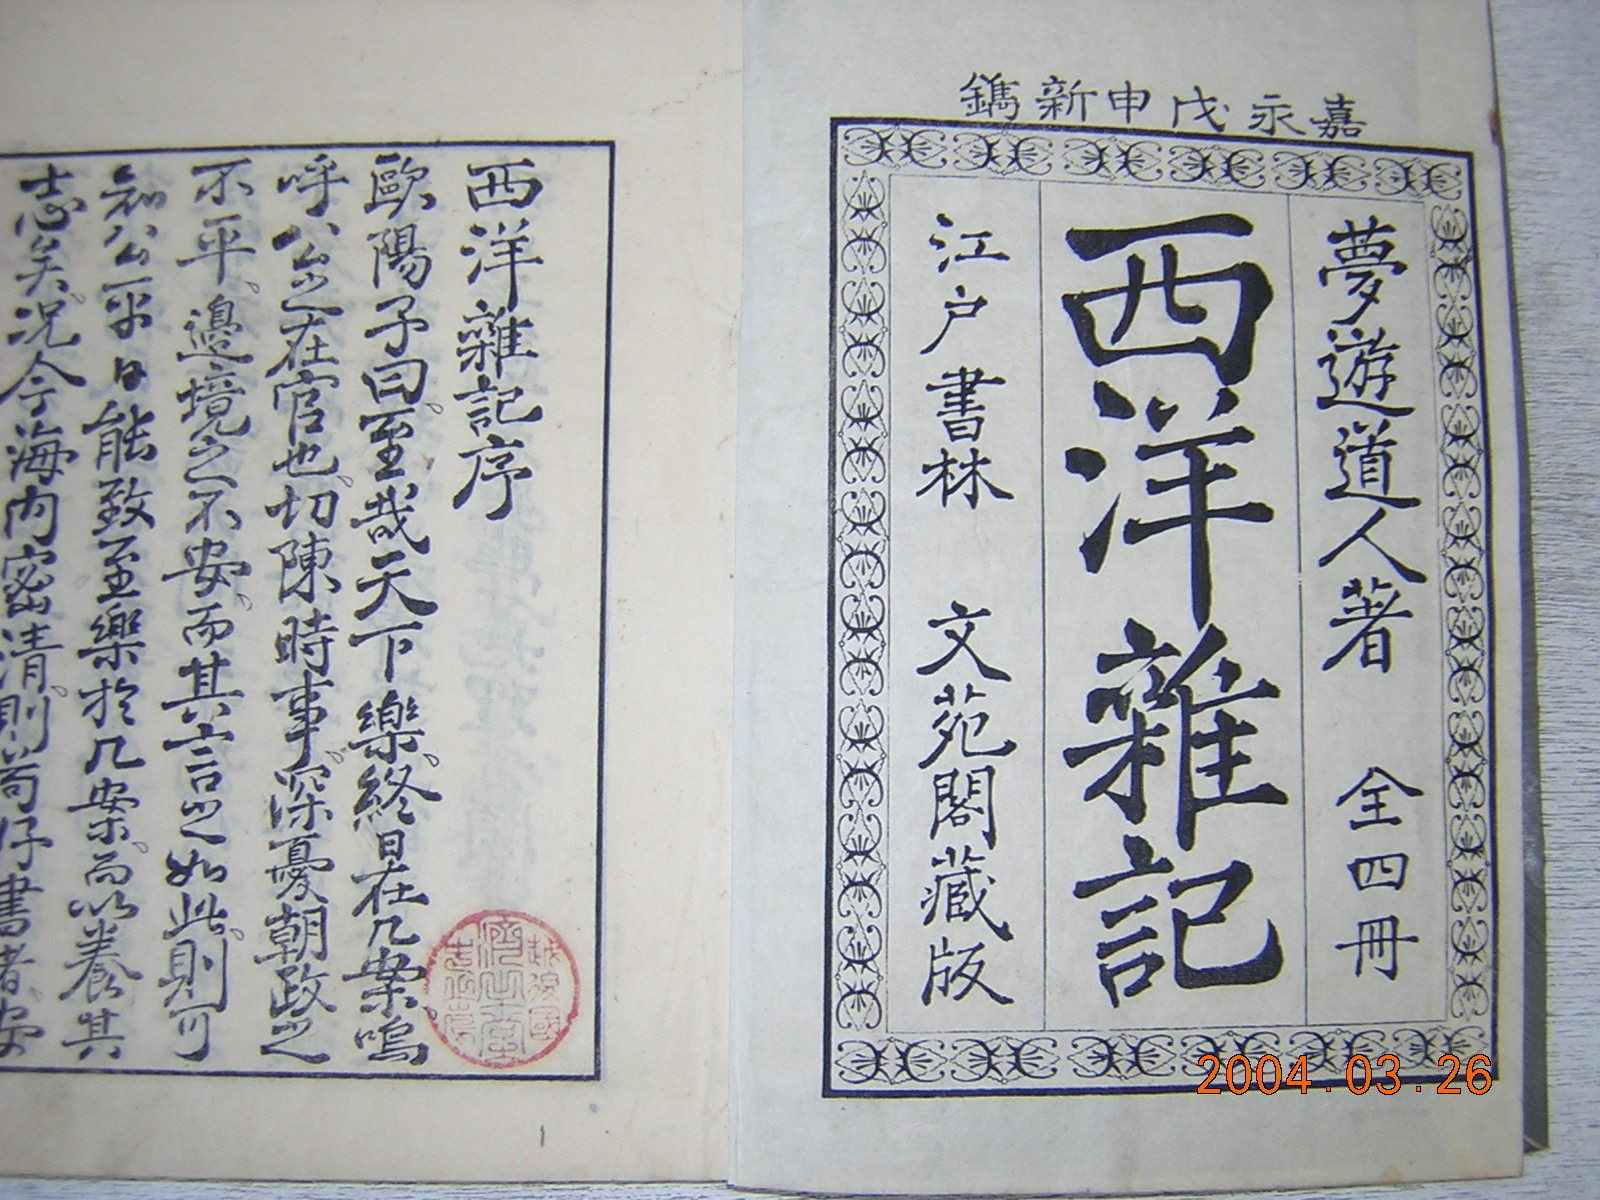 嘉永戊申新鐫
夢遊道人著 全四冊
西洋雜記
江戸書林 文苑閣藏版
西洋雜記序
歐陽子曰至哉天下樂終日在几案嗚
呼公之在官也切陳時事深憂朝政之
不平邊境之不安而其言之如此則可
知公平日能致至樂於几案而以養其
志矣況今海內密清則苟仔書者安
越後國
2004.03.26